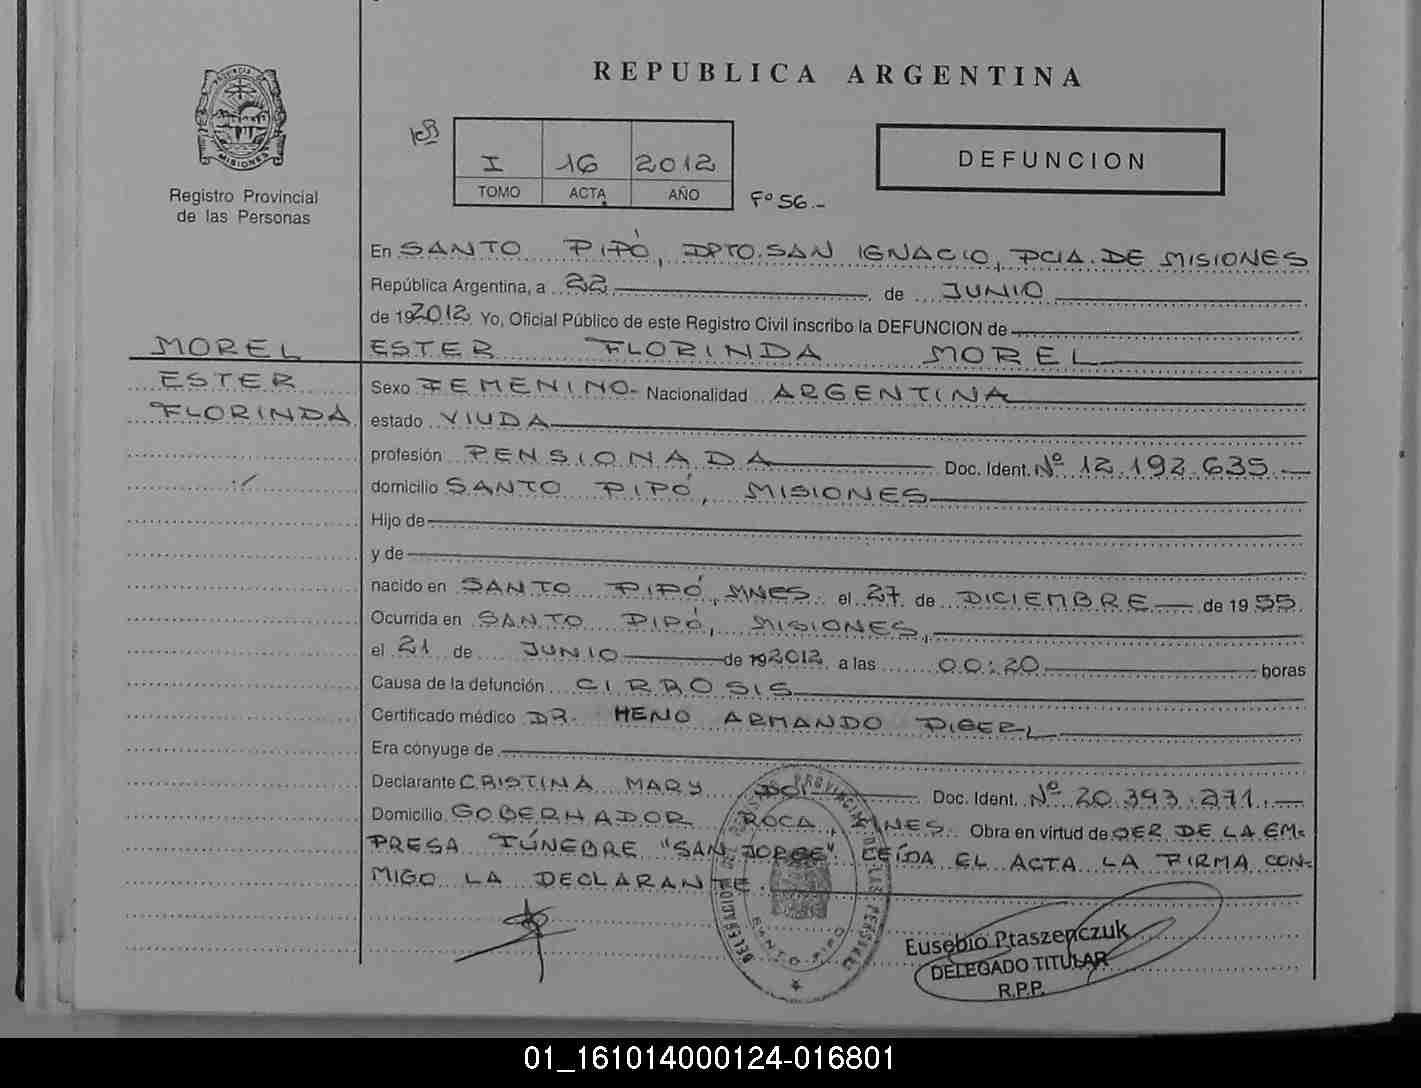 REPUBLICA ARGENTINA
PROVINCIA DE
MISIONES
Registro Provincial
de las Personas
I 16 2012
TOMO ACTA AÑO
Fº 56.-
DEFUNCION
En SANTO PIPÓ, DPTO. SAN IGNACIO, PCIA. DE MISIONES
República Argentina, a 22 de JUNIO
de 192012 Yo, Oficial Público de este Registro Civil inscribo la DEFUNCION de
MOREL ESTER FLORINDA MOREL
ESTER
Sexo FEMENINO- Nacionalidad ARGENTINA
FLORINDA
estado VIUDA
profesión PENSIONADA Doc. Ident. Nº 12.192.635.-
domicilio SANTO PIPÓ, MISIONES
Hijo de
y de
nacido en SANTO PIPÓ, MNES. el 27 de DICIEMBRE de 1955.
Ocurrida en SANTO PIPÓ, MISIONES,
el 21 de JUNIO de 192012 a las 00:20 horas
Causa de la defunción CIRROSIS
Certificado médico DR. HENO ARMANDO PIGERL
Era cónyuge de
Declarante CRISTINA MARY Doc. Ident. Nº 20.393.271.-
Domicilio GOBERNADOR ROCA, MNES. Obra en virtud de SER DE LA EM-
PRESA FÚNEBRE "SAN JORGE". LEÍDA EL ACTA LA FIRMA CON-
MIGO LA DECLARANTE.
DELEGACION DEL REGISTRO PROVINCIAL DE LAS PERSONAS
SANTO PIPO
Eusebio Ptaszenczuk
DELEGADO TITULAR
R.P.P.
01_161014000124-016801